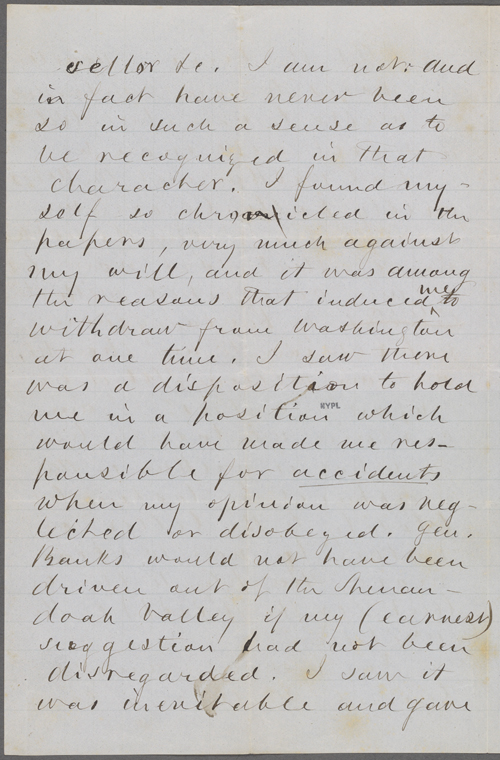 sellor &c. I am not: and
in fact have never been
so in such a sense as to
be recognized in that
character. I found my-
self so chronicled in the
papers, very much against
my will, and it was among
the reasons that induced me to
withdraw from Washington
at one time. I saw there
was a disposition to hold
me in a position which
NYPL
would have made me res-
ponsible for accidents
when my opinion was neg-
lected or disobeyed. Gen.
Banks would not have been
driven out of the Shenan-
doah Valley if my (earnest)
suggestion had not been
disregarded. I saw it
was inevitable and gave